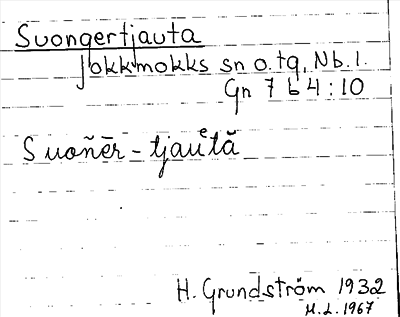 Suongertjauta
Jokkmokks sn o. tg, Nb. l.
Gn 7 b 4 : 10
Suoñēr - tjauͤtă
H. Grundström 1932
M. L. 1967